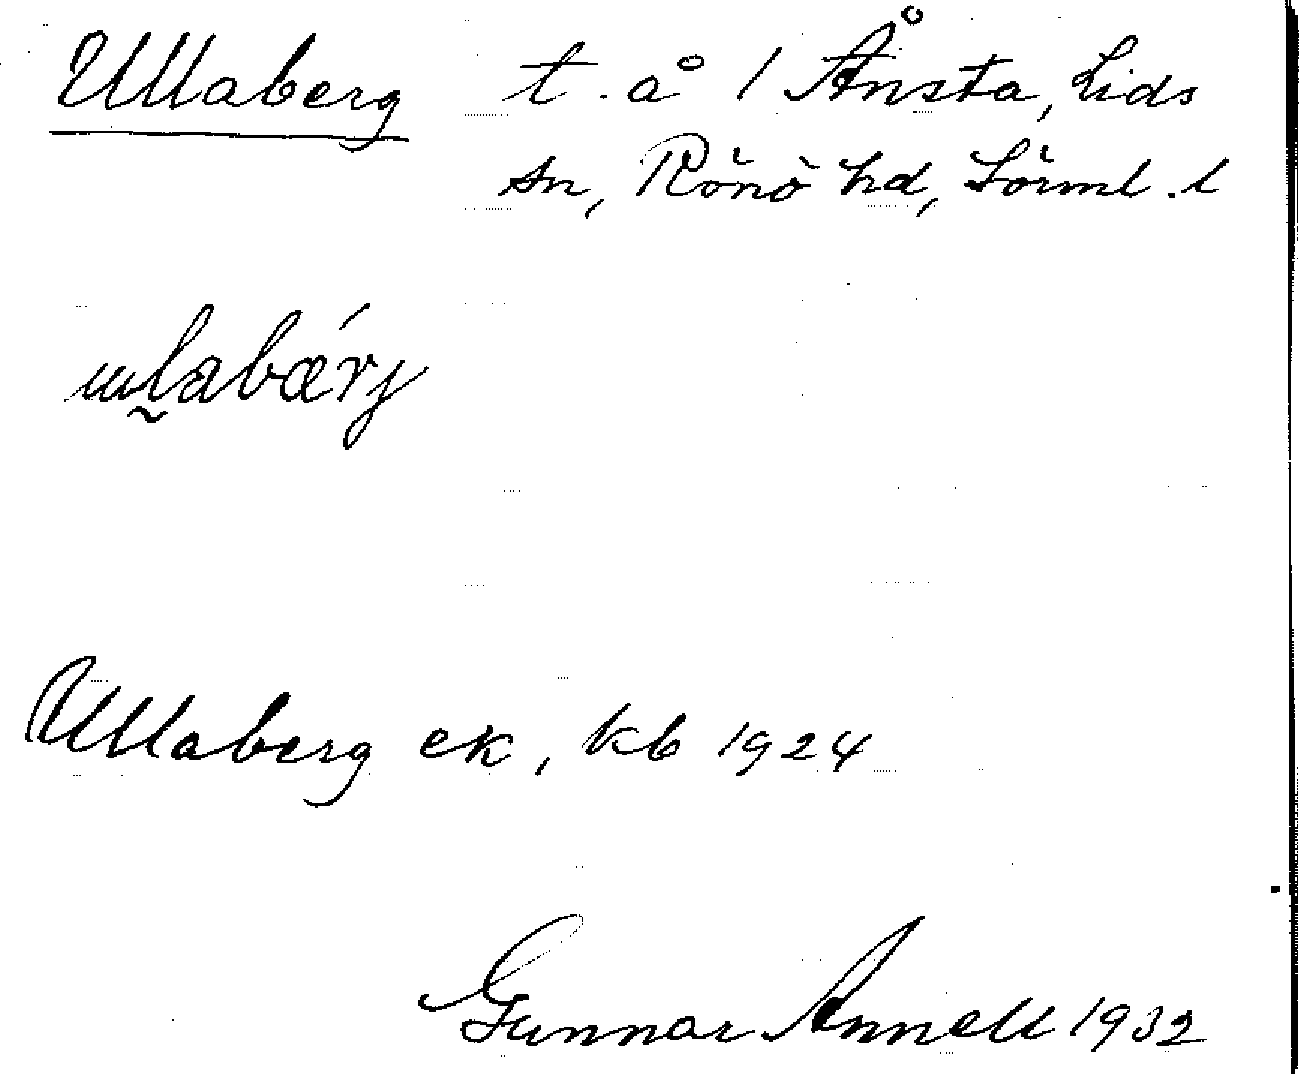 Ullaberg t. å 1 Ånsta, Lids
sn, Rönö hd, Sörml. l
ulabärj
Ullaberg ek, kb 1924
Gunnar Annell 1932